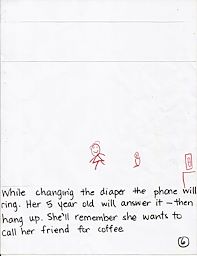 While changing the diaper the phone will
ring. Her 5 year old will answer it – then
hang up. She'll remember she wants to
call her friend for coffee
6